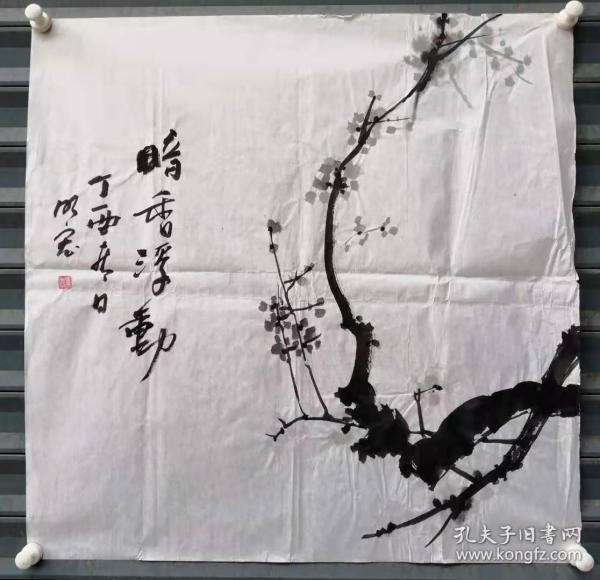 暗香浮動
丁酉春日
孔夫子旧书网
www.kongfz.com